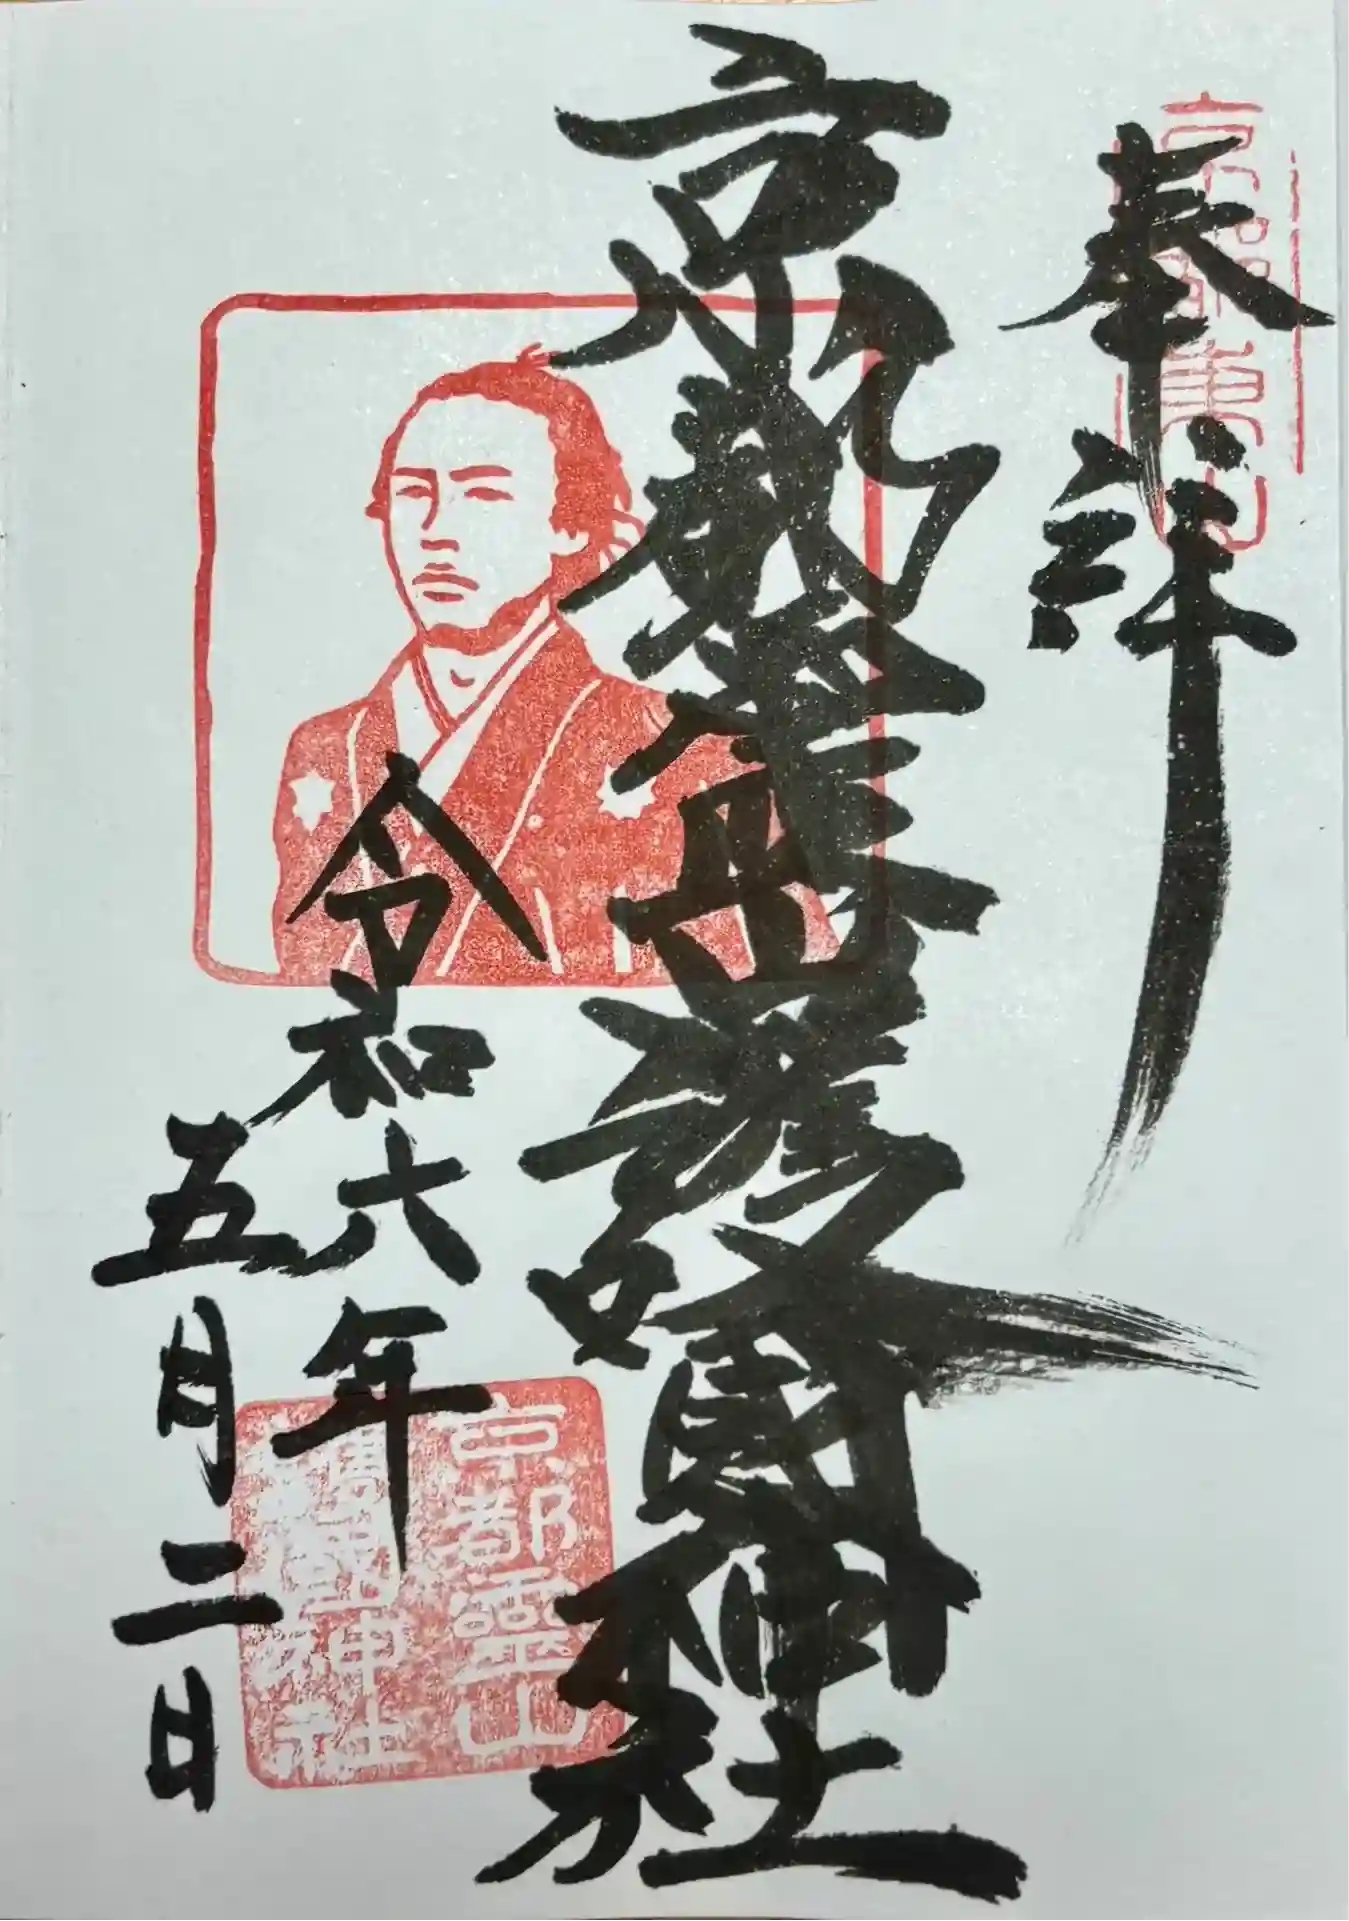 奉拝
京都霊山護國神社
令和六年
五月二日
京都霊山
護國神社